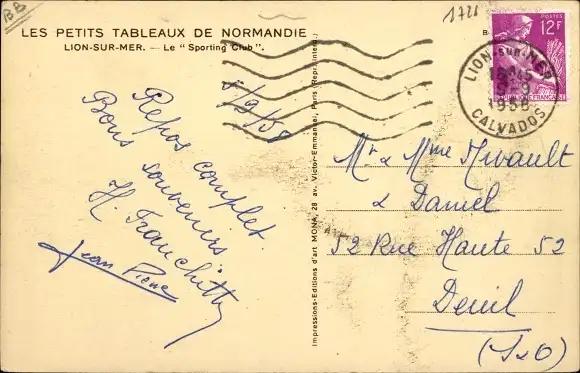 LES PETITS TABLEAUX DE NORMANDIE
LION-SUR-MER. — Le "Sporting Club".
BB
1721
POSTES
12F
LION-sur-MER
5-9
CALVADOS
5/9/58
Repos complet
Bons souvenirs
H. Franchitti
Jean Pierre
Impressions-Editions d'art MONA, 28 av. Victor-Emmanuel, Paris (Repr. interd.)
Mr & Mme Mivault
& Daniel
52 Rue Haute 52
Deuil
(S&O)